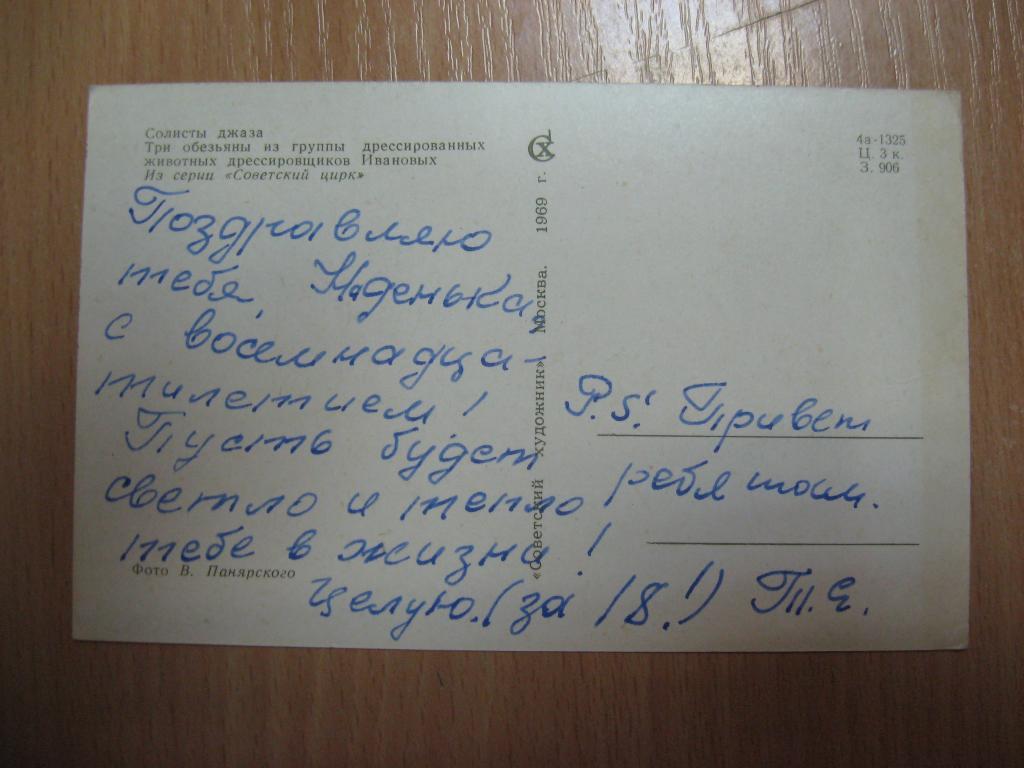 Солисты джаза
Три обезьяны из группы дрессированных
животных дрессировщиков Ивановых
Из серии «Советский цирк»
4а-1325
Ц. 3 к.
З. 906
«Советский художник» Москва. 1969 г.
Поздравляю
тебя, Наденька,
с восемнадца-
тилетием!
Пусть будет
светло и тепло
тебе в жизни!
Фото В. Панярского
Целую. (за 18!) Т.Е.
P.S. Привет
ребятам.